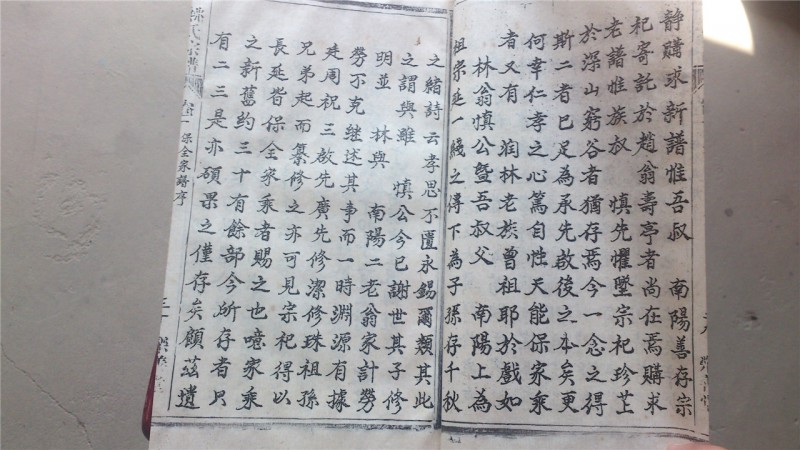 靜購求新譜惟吾叔 南陽善存宗
祀寄託於趙翁壽亭者尚在焉購求
老譜惟族叔 慎先懼墜宗祀珍芷
於深山窮谷者猶存焉今一念之得
斯二者已足為承先啟後之本矣更
何幸仁孝之心篤自性天能保家乘
者又有 润林老族曾祖耶於戲如
林翁慎公暨吾叔父 南陽上為
祖宗延一綫之傳下為子孫存千秋
之緒詩云孝思不匱永錫爾類其此
之謂與雖 慎公今已謝世其子修
明並 林與 南陽二老翁家計勞
勞不克继述其事而一時淵源有據
延周祝三啟先廣先修潔修珠祖孫
兄弟起而纂修之亦可見宗祀得以
長延皆保全家乘者賜之也噫家乘
之新舊約三十有餘部今所存者只
有二三是亦碩果之僅存矣顧茲遺
氏宗譜 保全家譜序